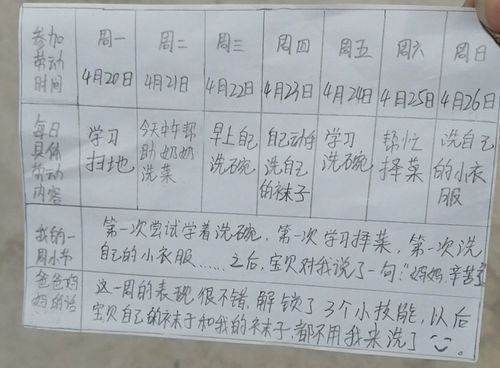 参加 周一 周二 周三 周四 周五 周六 周日
劳动
时间 4月20日 4月21日 4月22日 4月23日 4月24日 4月25日 4月26日
每日 学习 今天中午帮 早上自己 自己动手 学习 帮忙 洗自己
具体 扫地 助奶奶 洗碗 洗自己 洗碗 择菜 的小衣
劳动 洗菜 的袜子 服
内容
我的一 第一次尝试学着洗碗,第一次学习择菜,第一次洗
周小节 自己的小衣服……之后,宝贝对我说了一句:“妈妈,辛苦
爸爸妈 这一周的表现很不错,解锁了3个小技能,以后
妈的话 宝贝自己的袜子和我的袜子,都不用我来洗了。